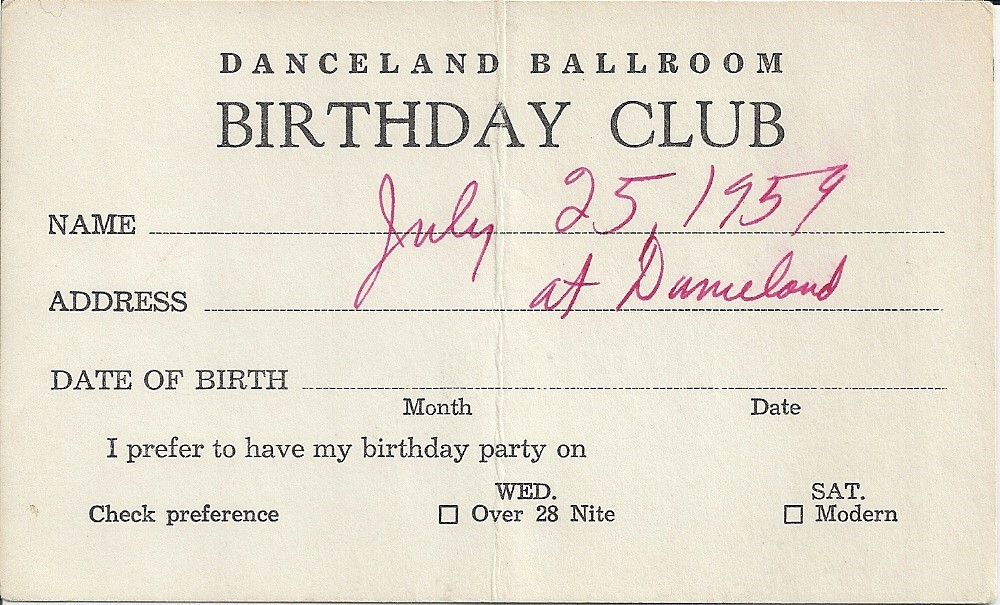 DANCELAND BALLROOM
BIRTHDAY CLUB
NAME July 25, 1959
ADDRESS at Danceland
DATE OF BIRTH
Month Date
I prefer to have my birthday party on
WED. SAT.
Check preference ☐ Over 28 Nite ☐ Modern